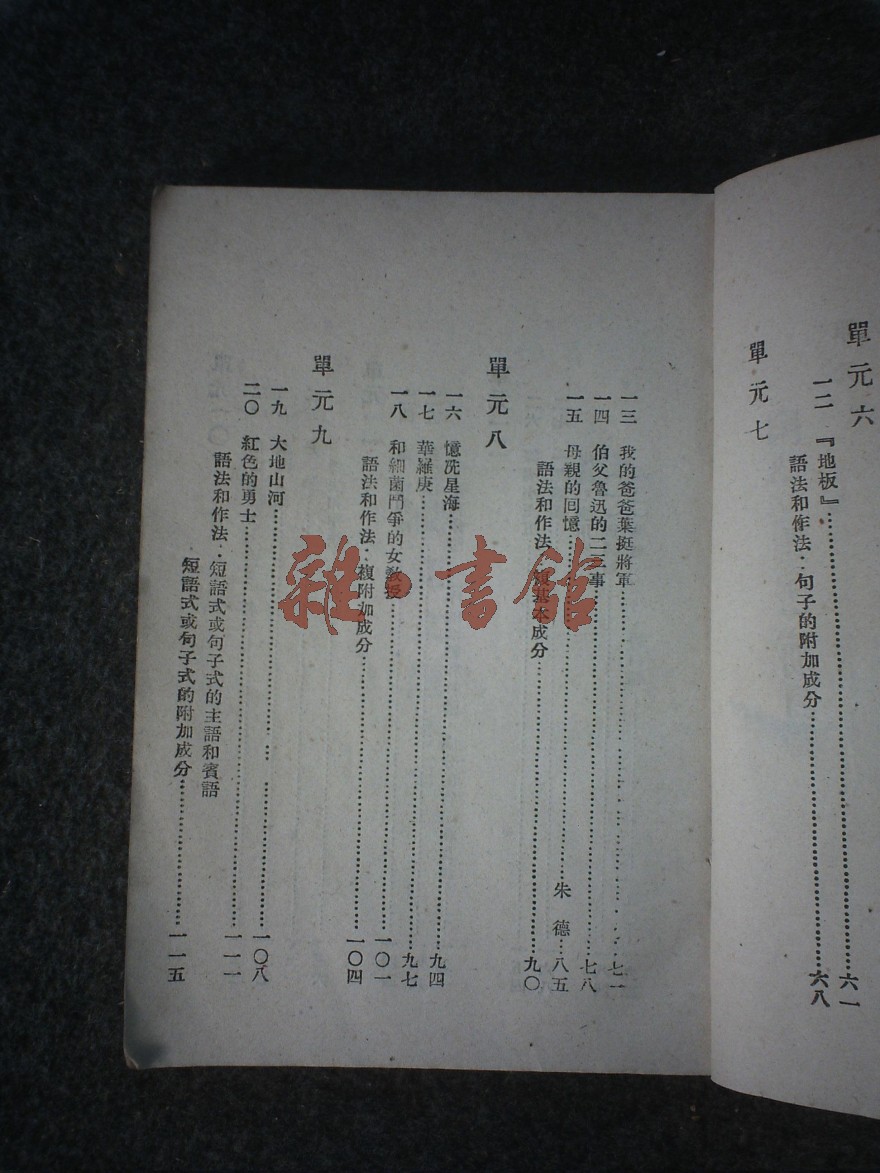 單元六
一二 『地板』……六一
語法和作法：句子的附加成分……六八
單元七
一三 我的爸爸葉挺將軍……七一
一四 伯父魯迅的二三事……七八
一五 母親的回憶……朱德…八五
語法和作法：複基本成分……九〇
單元八
一六 憶冼星海……九四
一七 華羅庚……九七
一八 和細菌鬥爭的女教授……一〇一
語法和作法：複附加成分……一〇四
單元九
一九 大地山河……一〇八
二〇 紅色的勇士……一一一
語法和作法：短語式或句子式的主語和賓語
短語式或句子式的附加成分……一一五
雜·書館